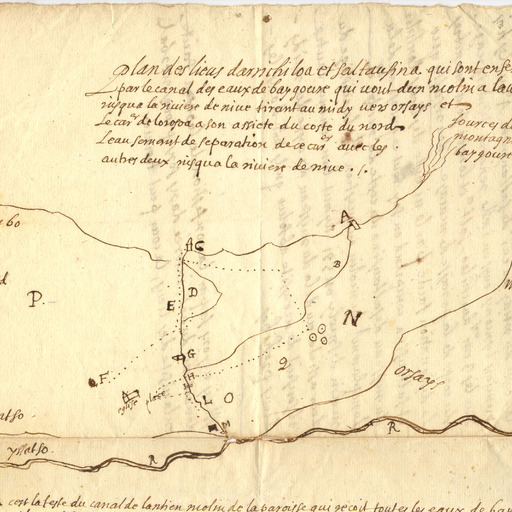 plan des lieus darrichiloa et saltausina. qui sont ense
par le canal des eaux de baygoure qui vont dun molin a lau
jusqua la riviere de nive tirant au midy vers orsays et
Le carr de lorossa a son assiete du coste du nord
Leau servant de separation de ce carr avec les
autres deux jusqua la riviere de nive ./.
sources de
montagne
baygoure
A
60
A C
B
D
E
P.
N
G
F
H
2
eglise place
L O
orsays
M
R
ysatso
R
cest la teste du canal de lantien molin de la paroisse qui recoit toutes les eaux de bay